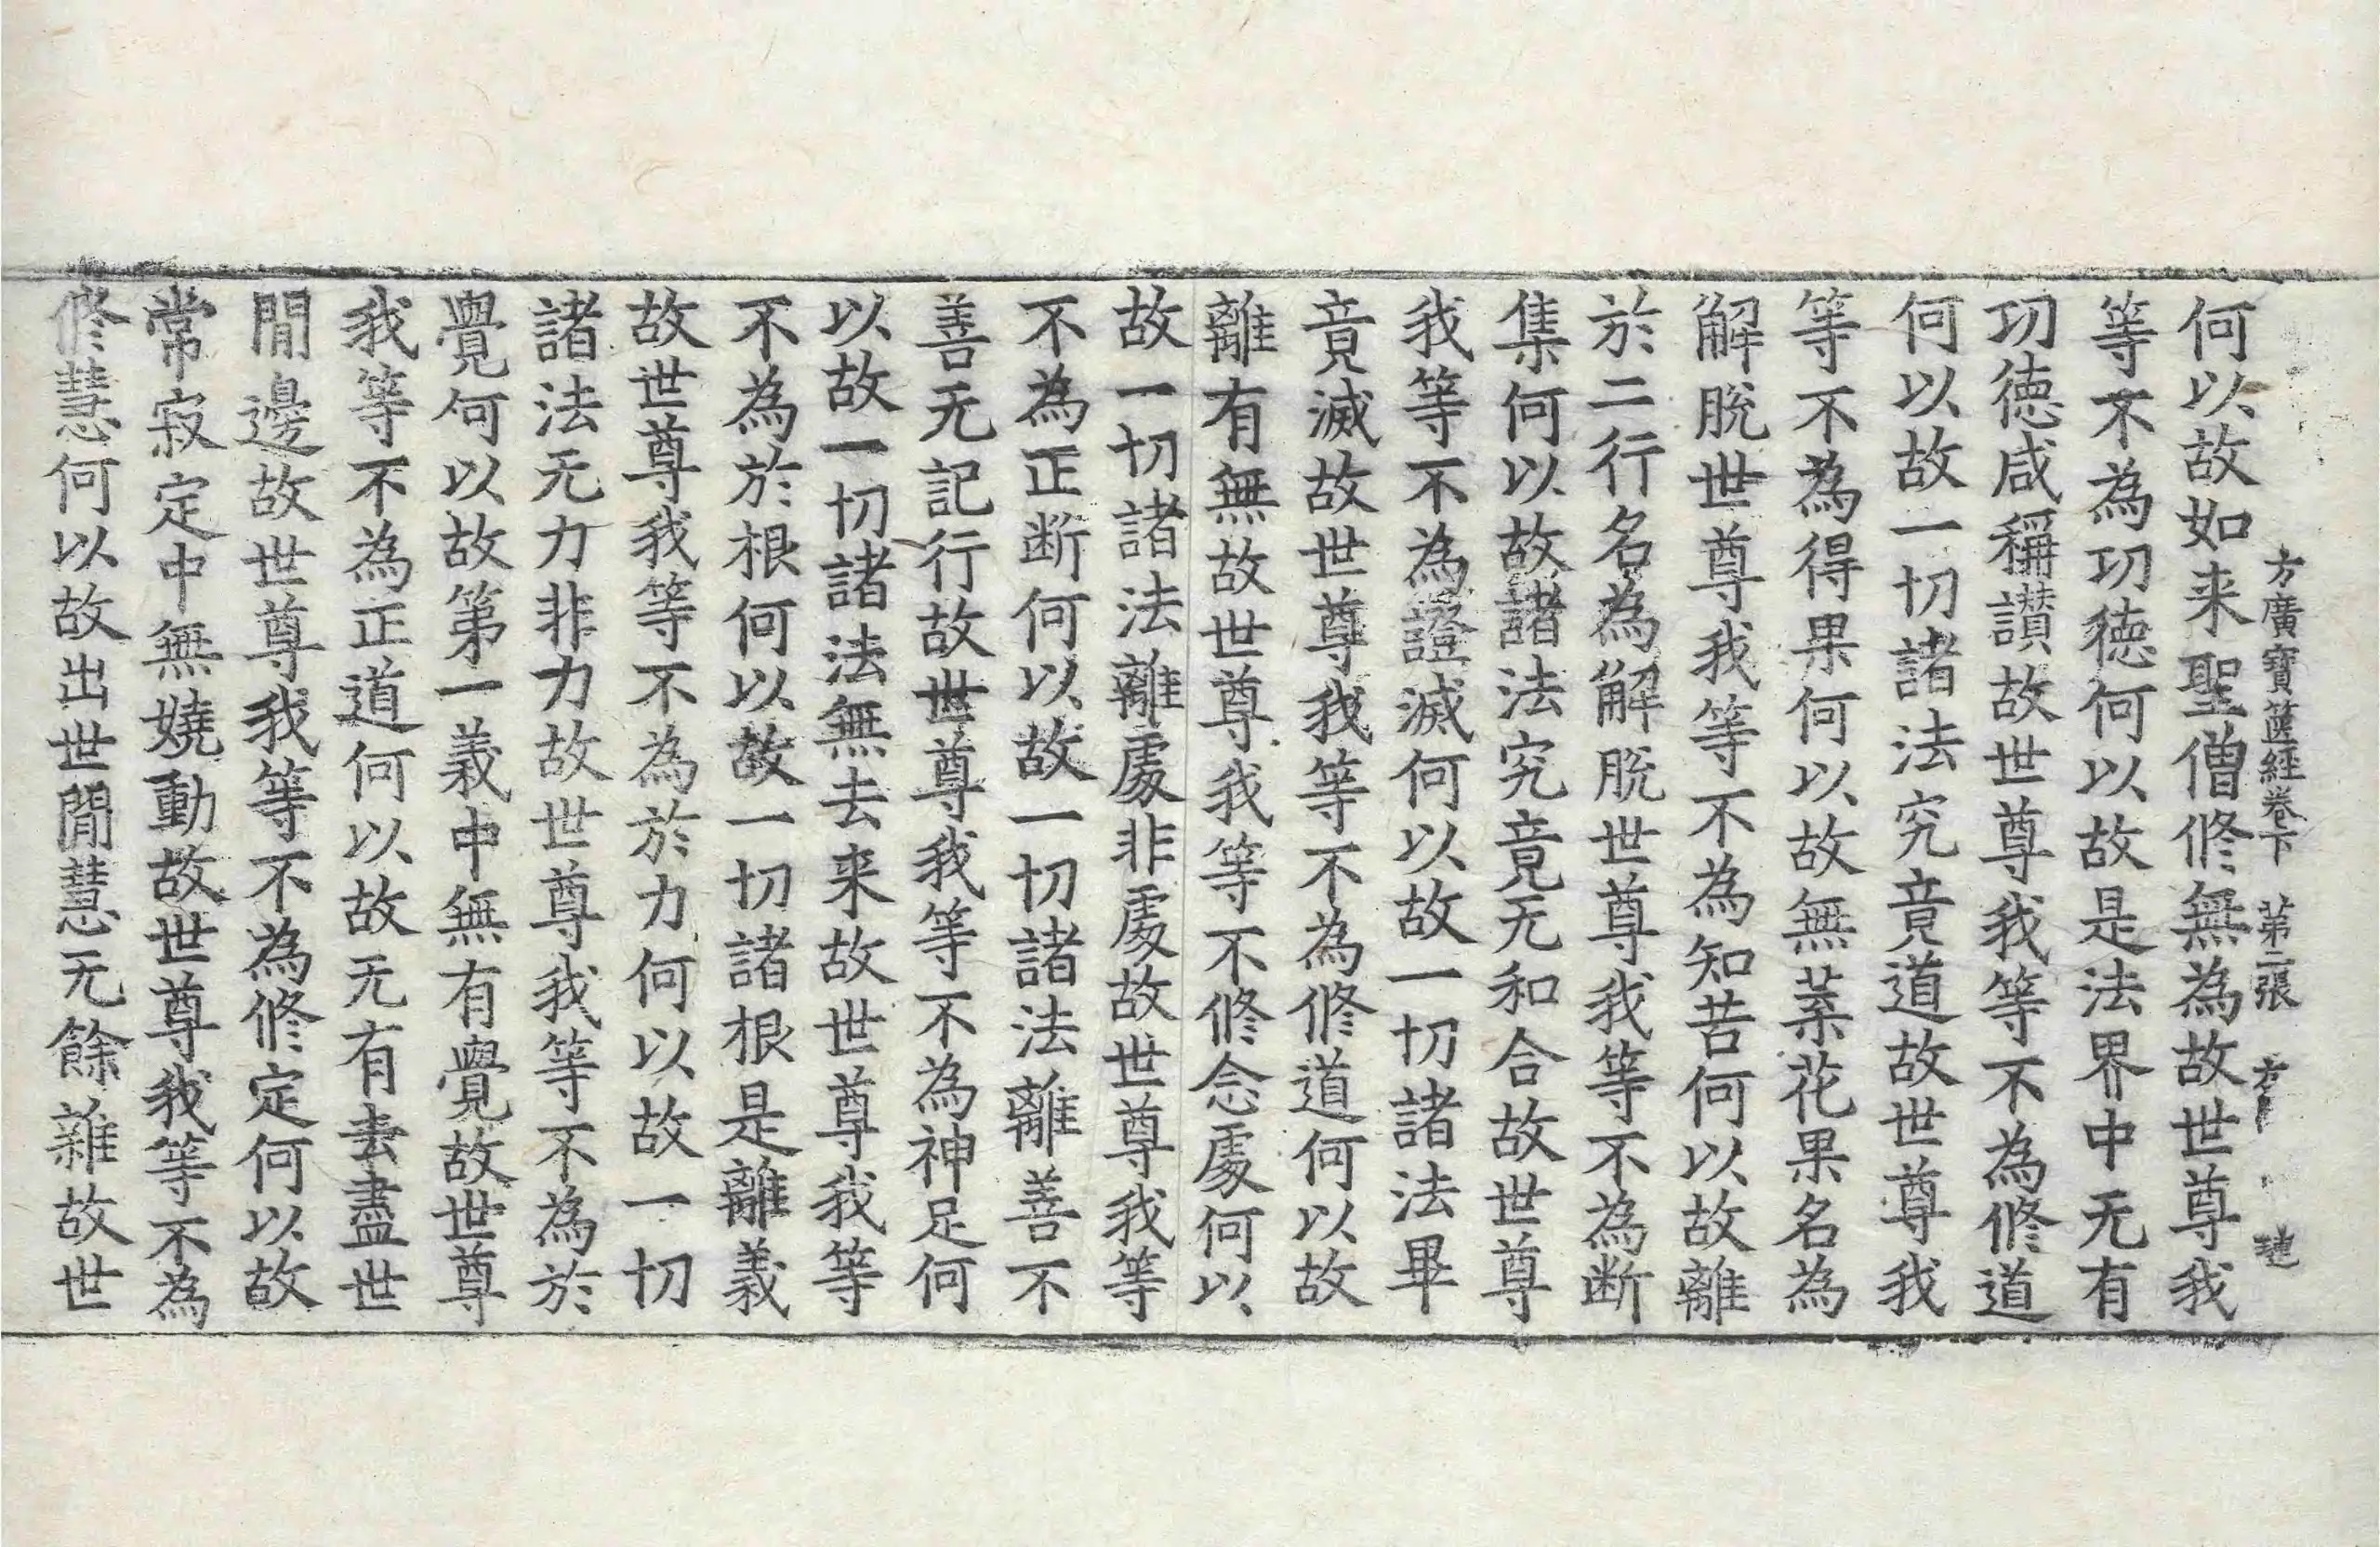 方廣寶篋經卷下　第二張　方
何以故如来聖僧修無為故世尊我
等不為功德何以故是法界中无有
功德咸稱讃故世尊我等不為修道
何以故一切諸法究竟道故世尊我
等不為得果何以故無葉花果名為
解脫世尊我等不為知苦何以故離
於二行名為解脫世尊我等不為断
集何以故諸法究竟无和合故世尊
我等不為證滅何以故一切諸法畢
竟滅故世尊我等不為修道何以故
離有無故世尊我等不修念處何以
故一切諸法離處非處故世尊我等
不為正断何以故一切諸法離善不
善无記行故世尊我等不為神足何
以故一切諸法無去来故世尊我等
不為於根何以故一切諸根是離義
故世尊我等不為於力何以故一切
諸法无力非力故世尊我等不為於
覺何以故第一義中無有覺故世尊
我等不為正道何以故无有去盡世
閒邊故世尊我等不為修定何以故
常寂定中無嬈動故世尊我等不為
修慧何以故出世閒慧无餘雜故世